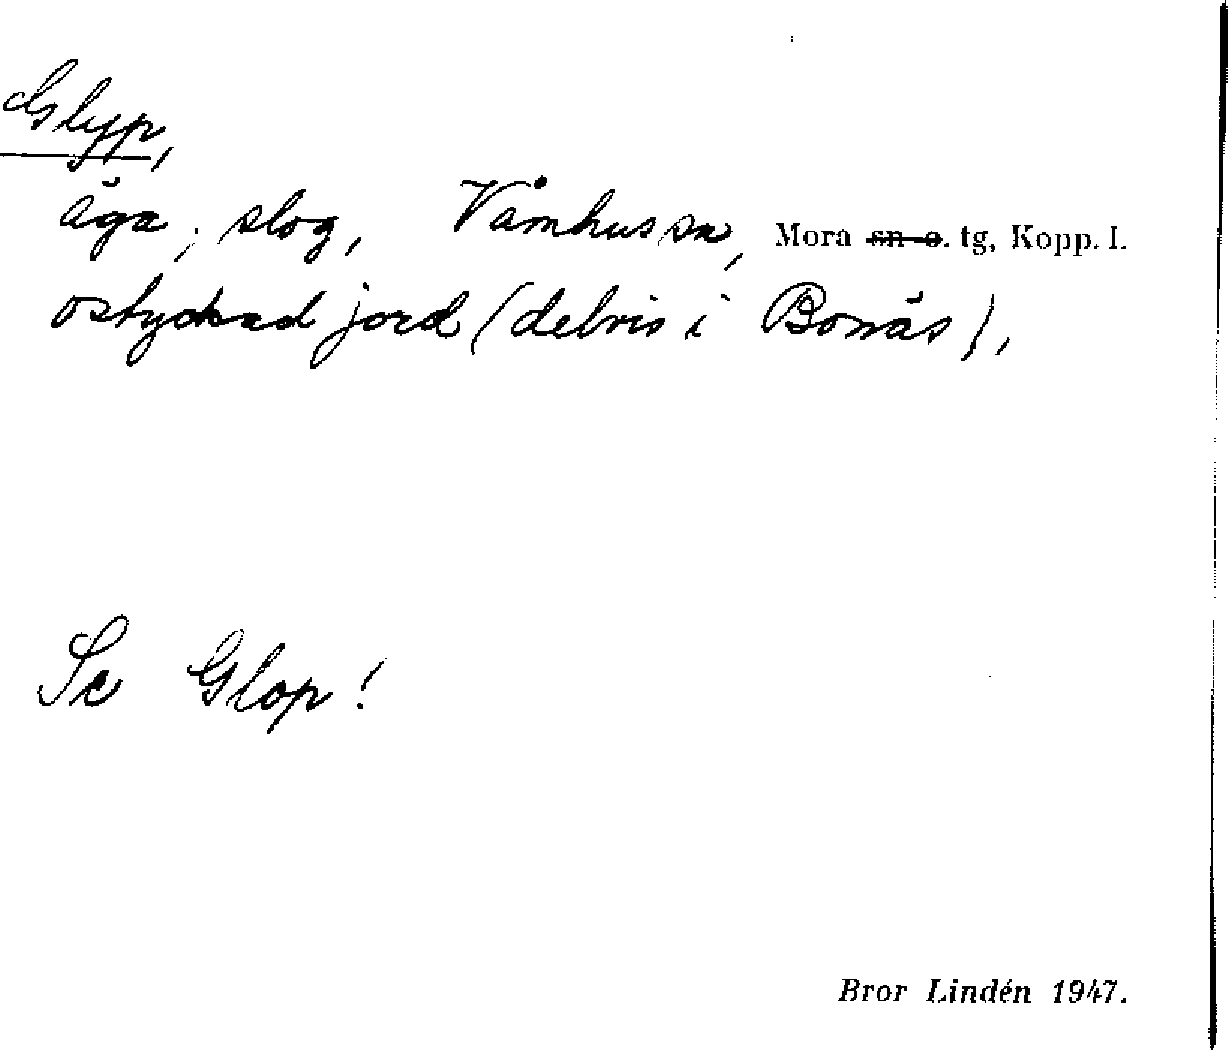 Glyp,
äga, slog, Våmhus sn, Mora sn o. tg, Kopp. l.
ostyckad jord (delvis i Bonäs),
Se Glop!
Bror Lindén 1947.